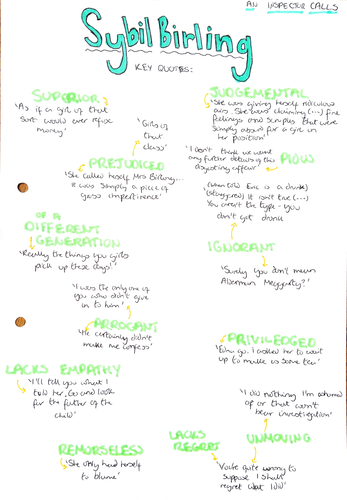 AN INSPECTOR CALLS
Sybil Birling
KEY QUOTES:
SUPERIOR
'As if a girl of that
sort would ever refuse
money'
'Girls of
that
class'
JUDGEMENTAL
'She was giving herself ridiculous
airs. She was claiming (...) fine
feelings and scruples that were
simply absurd for a girl in
her position'
PREJUDICED
'She called herself Mrs Birling...
It was simply a piece of
gross impertinence'
'I don't think we want
any further details of this
disgusting affair'
PIOUS
(Eric is a drunk)
(staggered) It isn't true (...)
You aren't the type - you
don't get drunk
IGNORANT
'Surely you don't mean
Alderman Meggarty?'
OF A
DIFFERENT
GENERATION
'Really the things you girls
pick up these days!'
'I was the only one of
you who didn't give
in to him'
ARROGANT
'He certainly didn't
make me confess'
PRIVILEGED
'Edna go. I asked her to wait
up to make us some tea'
LACKS EMPATHY
'I'll tell you what I
told her. Go and look
for the father of the
child'
'I did nothing I'm ashamed
of or that won't
bear investigation'
REMORSELESS
'She only had herself
to blame'
LACKS
REGRET
UNMOVING
'You're quite wrong to
suppose I shall
regret what I did'